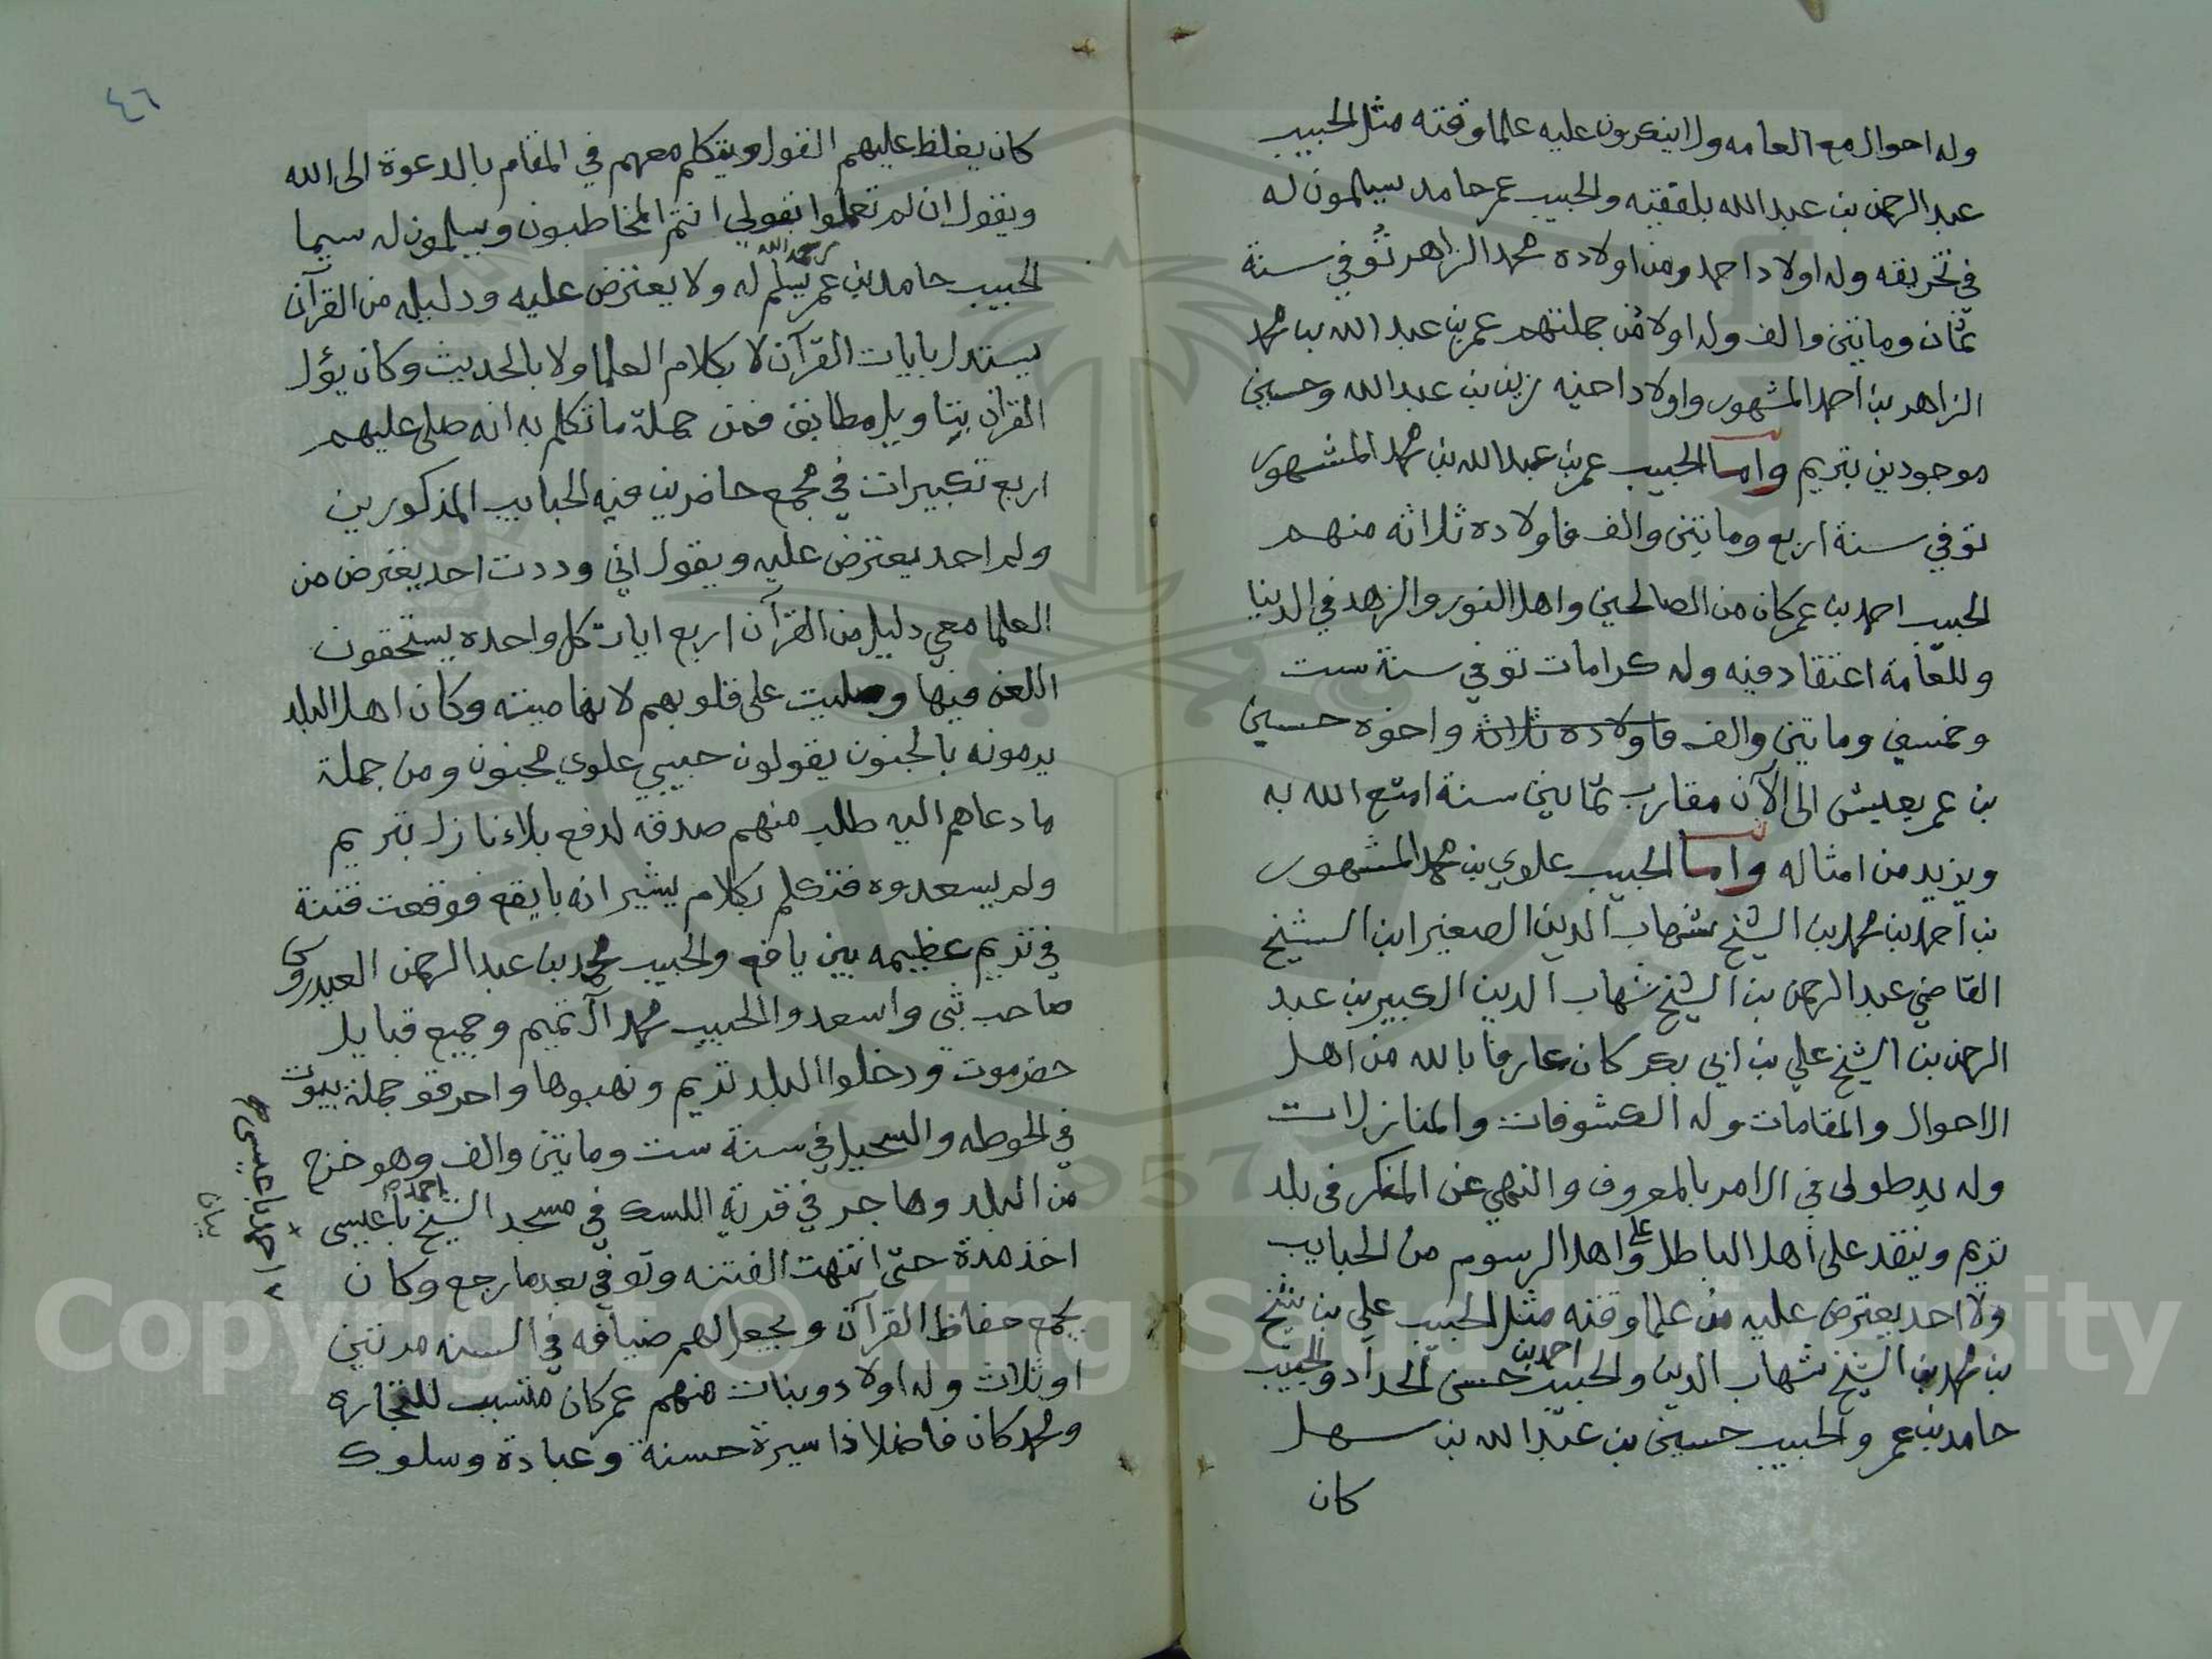 وله احوال مع العامه ولا ينكرون عليه علما وقته مثل الحبيب
عبد الرحمن بن عبد الله بلفقيه والحبيب عمر حامد يسلمون له
في تخريقه وله اولاد احمد ومن اولاده محمد الزاهر توفي سنة
ثمان ومايتين والف وله اولاد من جملتهم عمر بن عبد الله بن محمد
الزاهر بن احمد المشهور واولاد اخيه زين بن عبد الله وحسين
موجودين بتريم واما الحبيب عمر بن عبد الله بن محمد المشهور
توفي سنة اربع ومايتين والف فاولاده ثلاثه منهم
الحبيب احمد بن عمر كان من الصالحين واهل النور والزهد في الدنيا
وللعامة اعتقاد فيه وله كرامات توفي سنة ست
وخمسين ومايتين والف فاولاده ثلاث واخوه حسين
بن عمر يعيش الى الآن مقارب ثمانين سنة امتع الله به
ويزيد من امثاله واما الحبيب علوي بن محمد المشهور
بن احمد بن محمد بن الشيخ شهاب الدين الصغير ابن الشيخ
القاضي عبد الرحمن بن الشيخ شهاب الدين الكبير بن عبد
الرحمن بن الشيخ علي بن ابي بكر كان عارفا بالله من اهل
الاحوال والمقامات وله الكشوفات والمنازلات
وله يد طولى في الامر بالمعروف والنهي عن المنكر في بلد
تريم وينقد على اهل الباطل وعلى اهل الرسوم من الحبايب
ولا احد يعترض عليه من علما وقته مثل الحبيب علي بن شيخ
بن محمد بن الشيخ شهاب الدين والحبيب احمد بن حسن الحداد والحبيب
حامد بن عمر والحبيب حسين بن عبد الله بن سهل
كان
٤٦
كان يغلظ عليهم القول ويتكلم معهم في المقام بالدعوة الى الله
ويقول ان لم تعملوا بقولي انتم المخاطبون ويسلمون له سيما
الحبيب حامد بن عمر رحمه الله يسلم له ولا يعترض عليه ودليله من القرآن
يستدل بايات القرآن لا بكلام العلما ولا بالحديث وكان يؤل
القران بتاويل مطابق فمن جملة ما تكلم به انه صلى عليهم
اربع تكبيرات في مجمع حاضرين فيه الحبايب المذكورين
ولم احد يعترض عليه ويقول اني وددت احد يعترض من
العلما معي دليل من القرآن اربع ايات كل واحده يستحقون
اللعن فيها وصليت على قلوبهم لانها ميته وكان اهل البلد
يرمونه بالجنون يقولون حبيبي علوي مجنون ومن جملة
ما دعاهم اليه طلب منهم صدقه لدفع بلاء نازل بتريم
ولم يسعدوه فتكلم بكلام يشير انه بايقع فوقعت فتنة
في تريم عظيمه بين يافع والحبيب محمد بن عبد الرحمن العيدروس
صاحب ثبي واسعدوا الحبيب محمد آل تميم وجميع قبايل
حضرموت ودخلوا البلد تريم ونهبوها واحرقو جملة بيوت
في الحوطه والسحيل في سنة ست ومايتين والف وهو خرج
من البلد وهاجر في قرية اللسك في مسجد الشيخ احمد باعيسى
اخذ مدة حتى انتهت الفتنه وتوفي بعد ما رجع وكان
يجمع حفاظ القرآن ويجعل لهم ضيافه في السنه مرتين
او ثلاث وله اولاد وبنات منهم عمر كان متسبب للتجاره
ومحمد كان فاضلا ذا سيرة حسنة وعبادة وسلوك
احمد باعيسى
بيان
Copyright © King Saud University
1957